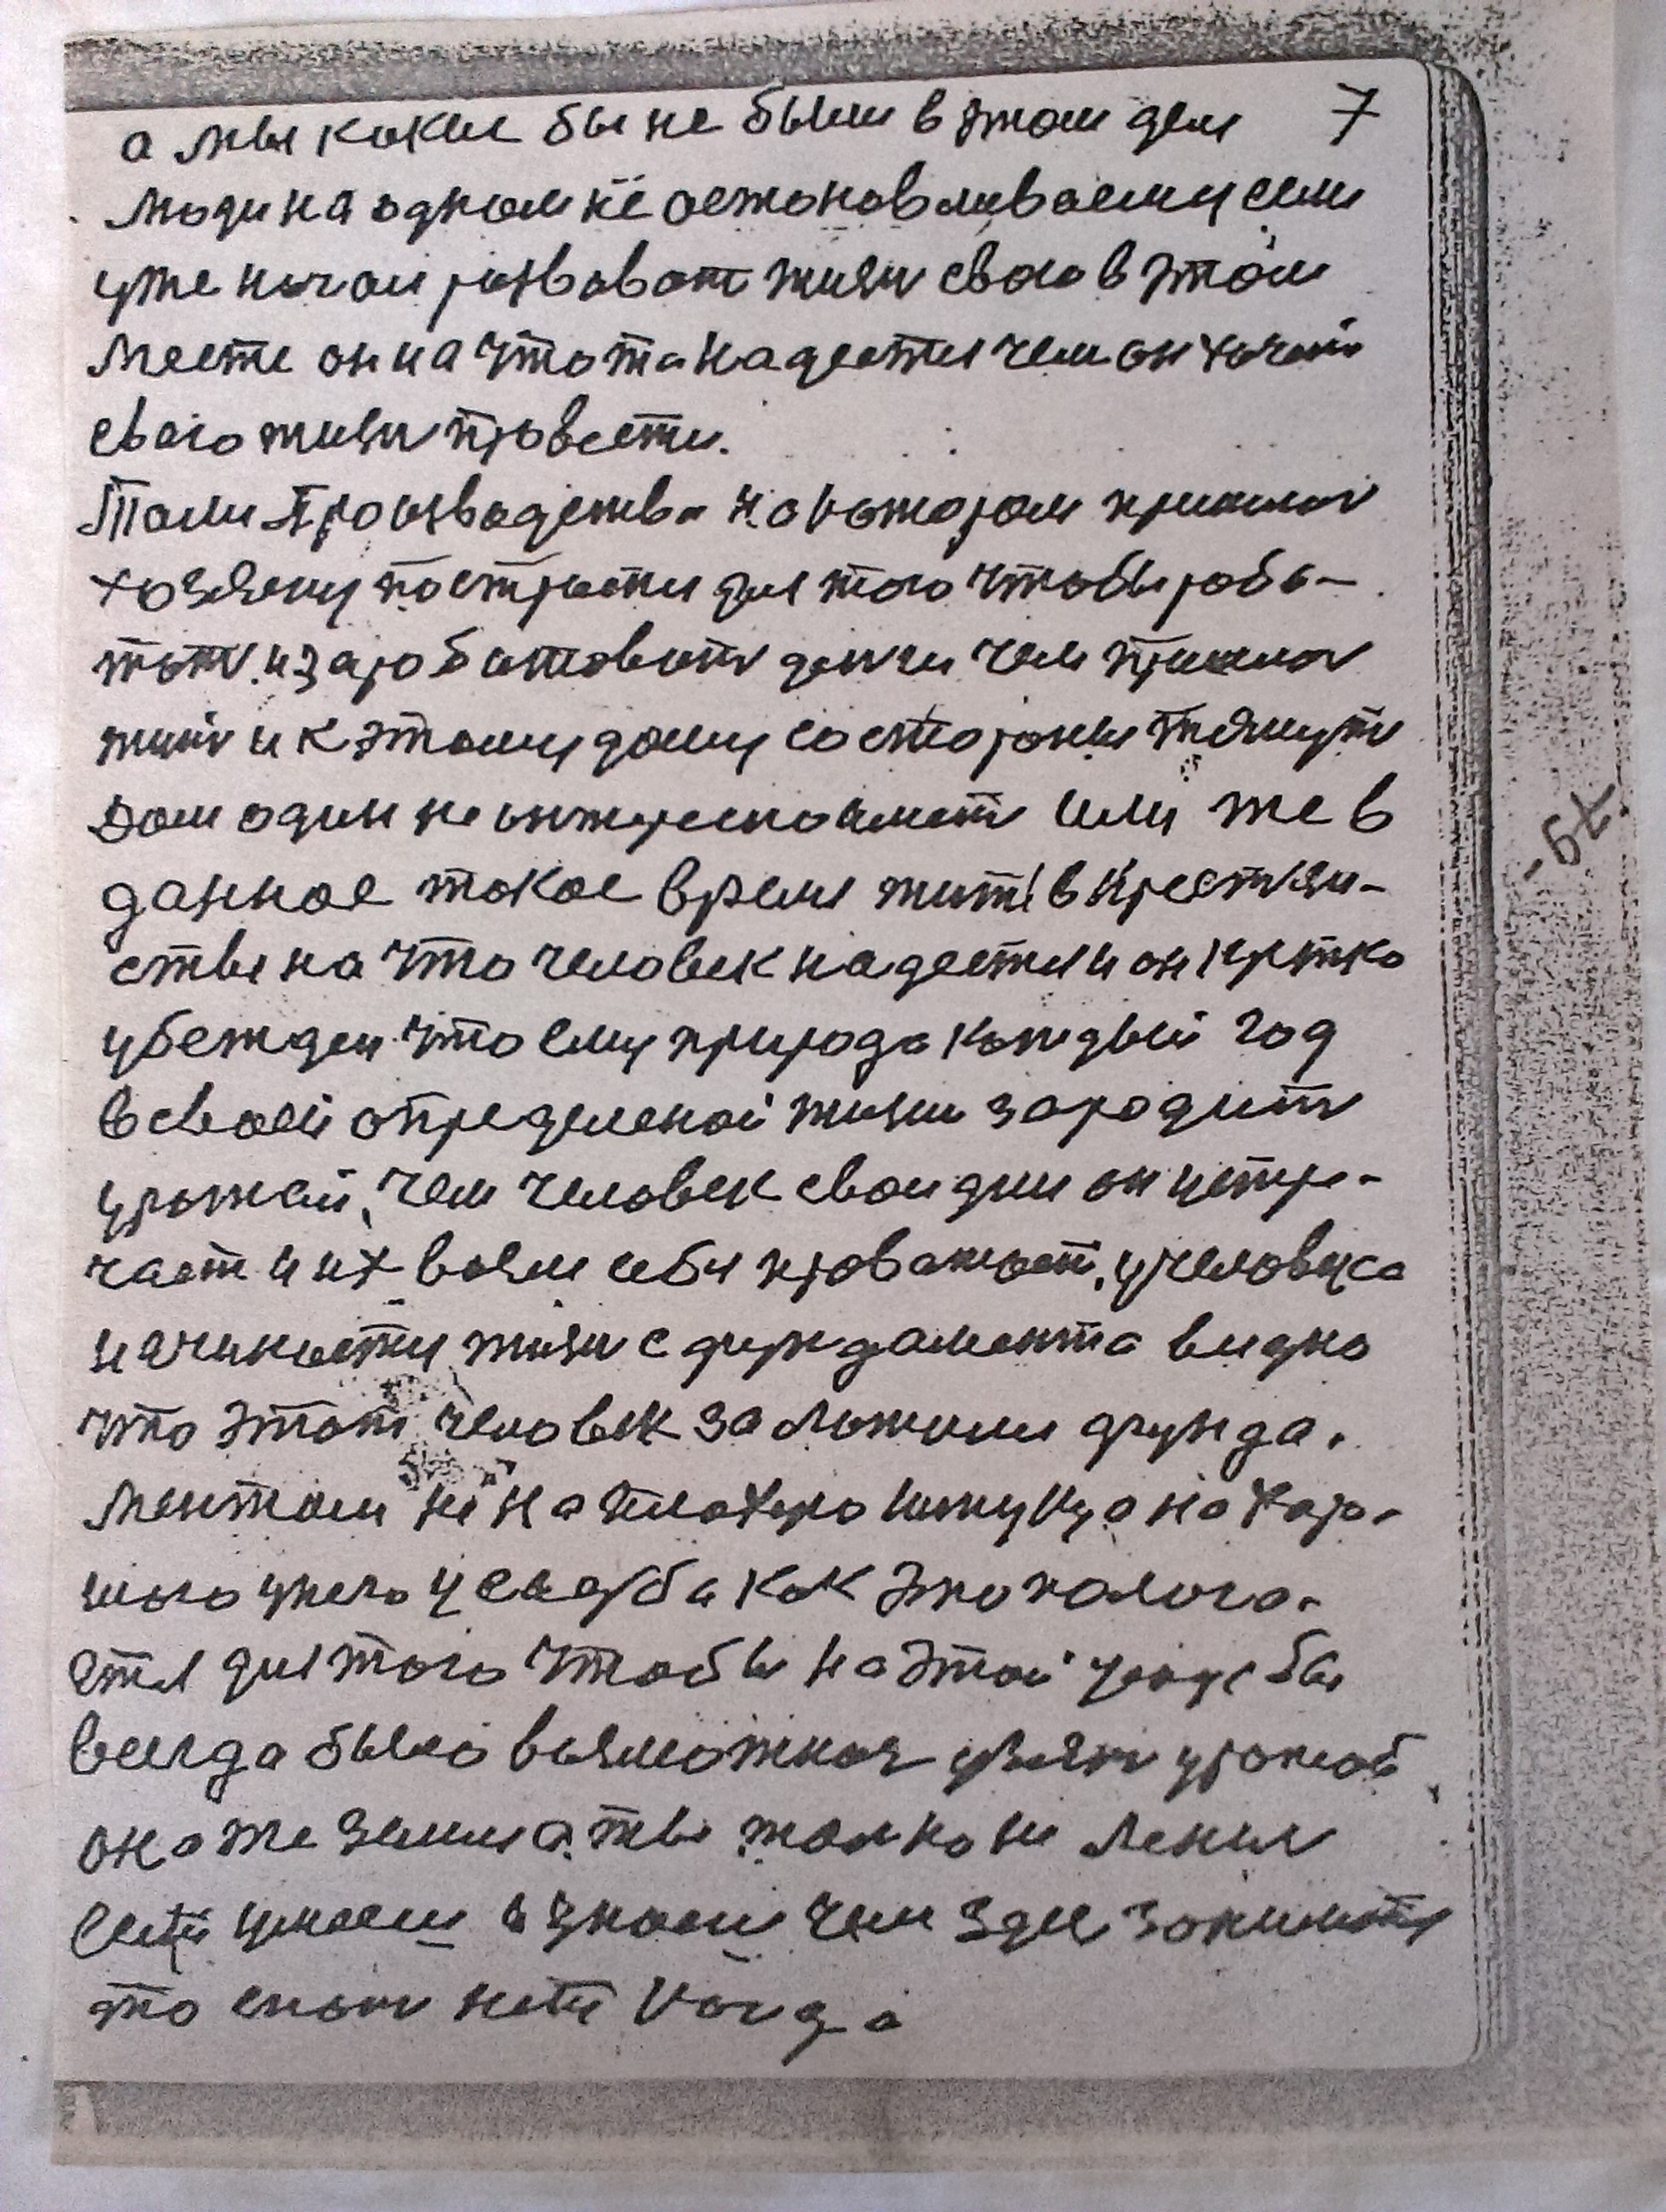 а мы какие бы не были в этом деле 7
люди на одном не остонавливаемся если
уже начал розвиват жизн свою в этом
месте он на что то надеется чем он хочет
свого жизн провести.
Там производства на котором пришлос
хозяену построети для того чтобы робо-
тат. и заработоват денги чем пришлос
жить и к этому дому со стороны тянути
дом один не интересно имет или же в
данное такое время жить в крестяи-
стве на что человек надеется и он крепко
убежден что ему природа каждый год
в своей определеной жизни зародит
урожай, чем человек свои дни он истре-
чает и их возле себя провожает, у человека
начинается жизн с фундамента видно
что этот человек заложили фунда-
ментом не на плохую а на харо-
шого усадба как это полого-
ется для того чтобы на этой усадбе бы
всегда было возможная узят урожай
она же земля а ты толко не ленис
если умееш и знаеш чем здес заниматся
то спат нети когда
79-